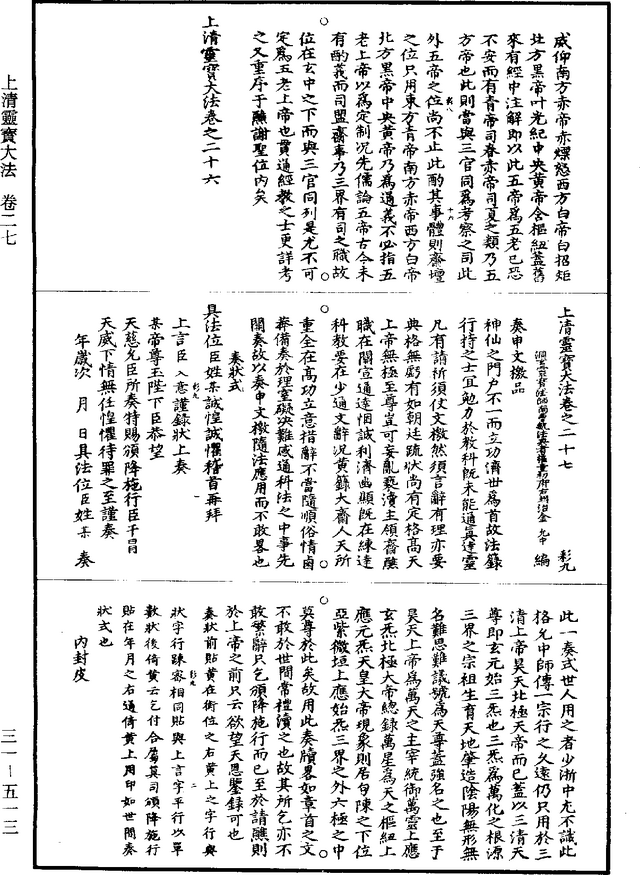 上清靈寶大法 卷二七
三一—五一三
威仰南方赤帝赤熛怒西方白帝白招矩
北方黑帝叶光紀中央黃帝含樞紐蓋舊
來有經中注解即以此五帝為五老已恐
不安而有青帝司春赤帝司夏之類乃五
方帝也此則當與三官同為考察之司此
外五帝之位尚不止此酌其事體則齋壇
之位只用東方青帝南方赤帝西方白帝
北方黑帝中央黃帝乃為通義不必指五
老上帝以為定制況先儒論五帝古今未
有酌義而司盟齋事乃三界有司之職故
位在玄中之下而與三官同列是尤不可
定為五老上帝也貫通經教之士更詳考
之又重序于醮謝聖位內矣
上清靈寶大法卷之二十六
上清靈寶大法卷之二十七 彩九
編
奏申文檄品
神仙之門戶不一而立功濟世為首故法籙
行持之士宜勉力於教科既未能通真達靈
凡有請祈須仗文檄然須言辭有理亦要
典格無虧有如朝廷疏狀尚有定格高天
上帝無極至尊豈可妄亂褻瀆主領齋醮
職在闡宣通達悃誠利濟幽顯既在練達
科教要在少通文辭況黃籙大齋人天所
重全在高功立意措辭不當隨順俗情鹵
莽備奏於理窒礙決難感通科法之中事先
關奏故以奏申文檄隨法應用而不敢畧也
奏狀式
具法位臣姓某誠惶誠懼稽首再拜
上言臣入意謹錄狀上奏
某帝尊玉陛下臣恭望
天慈允臣所奏特賜頒降施行臣干冒
天威下情無任惶懼待罪之至謹奏
年歲次 月 日具法位臣姓 某 奏
此一奏式世人用之者少浙中尤不識此
格允中師傳一宗行之久遠仍只用於三
清上帝昊天北極天帝而已蓋以三清天
尊即玄元始三炁也三炁為萬化之根源
三界之宗祖生育天地肇造陰陽無形無
名難思難議號為天尊蓋強名之也至于
昊天上帝為萬天之主宰統御萬靈上應
玄炁北極大帝總錄萬星為天之樞紐上
應元炁天皇大帝現象則居勾陳之下位
亞紫微垣上應始炁三界之外六極之中
莫尊於此矣故用此奏牘畧如章首之文
不敢於世間常禮瀆之也故其所乞亦不
敢繁辭只乞頒降施行而已至於請醮則
於上帝之前只云欲望天恩鑒錄可也
奏狀前貼黃在銜位之右黃上之字行與
狀字行踈密相同貼與上言字平行以單
數狀後倚黃云乞付合屬真司頒降施行
貼在年月之右通倚黃上用印如世間奏
狀式也
內封皮